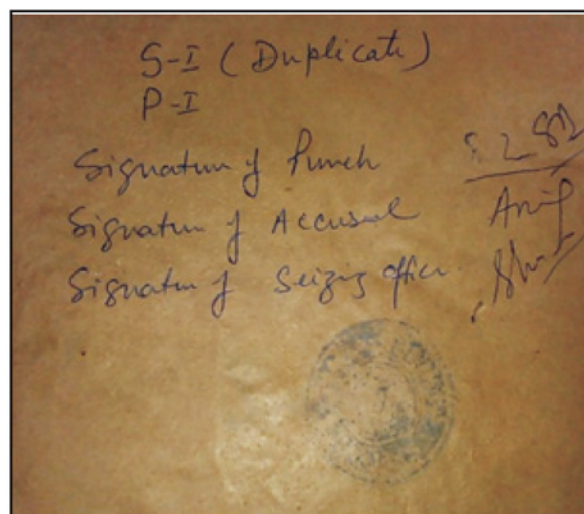 S-I (Duplicate)
P-I
Signature of Punch
Signature of Accused Arif
Signature of Seizing officer